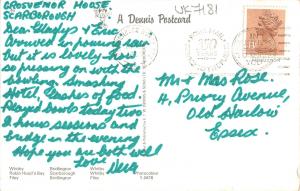 GROSVENOR HOUSE
SCARBOROUGH
A Dennis Postcard
UK7181
Dear Gladys &
Arrived in pouring rain
but it is lovely now
so pressing on with the
bowling. Smashing
Hotel, Masses of food.
Played Bowls today two
2 hours sessions and
bridge in the evening
Hope you are both well
love
Mr & Mrs Rose.
4, Priory Avenue,
Old Harlow
Essex.
Whitby Bridlington Whitby
Robin Hood's Bay Scarborough
Filey Bridlington Filey